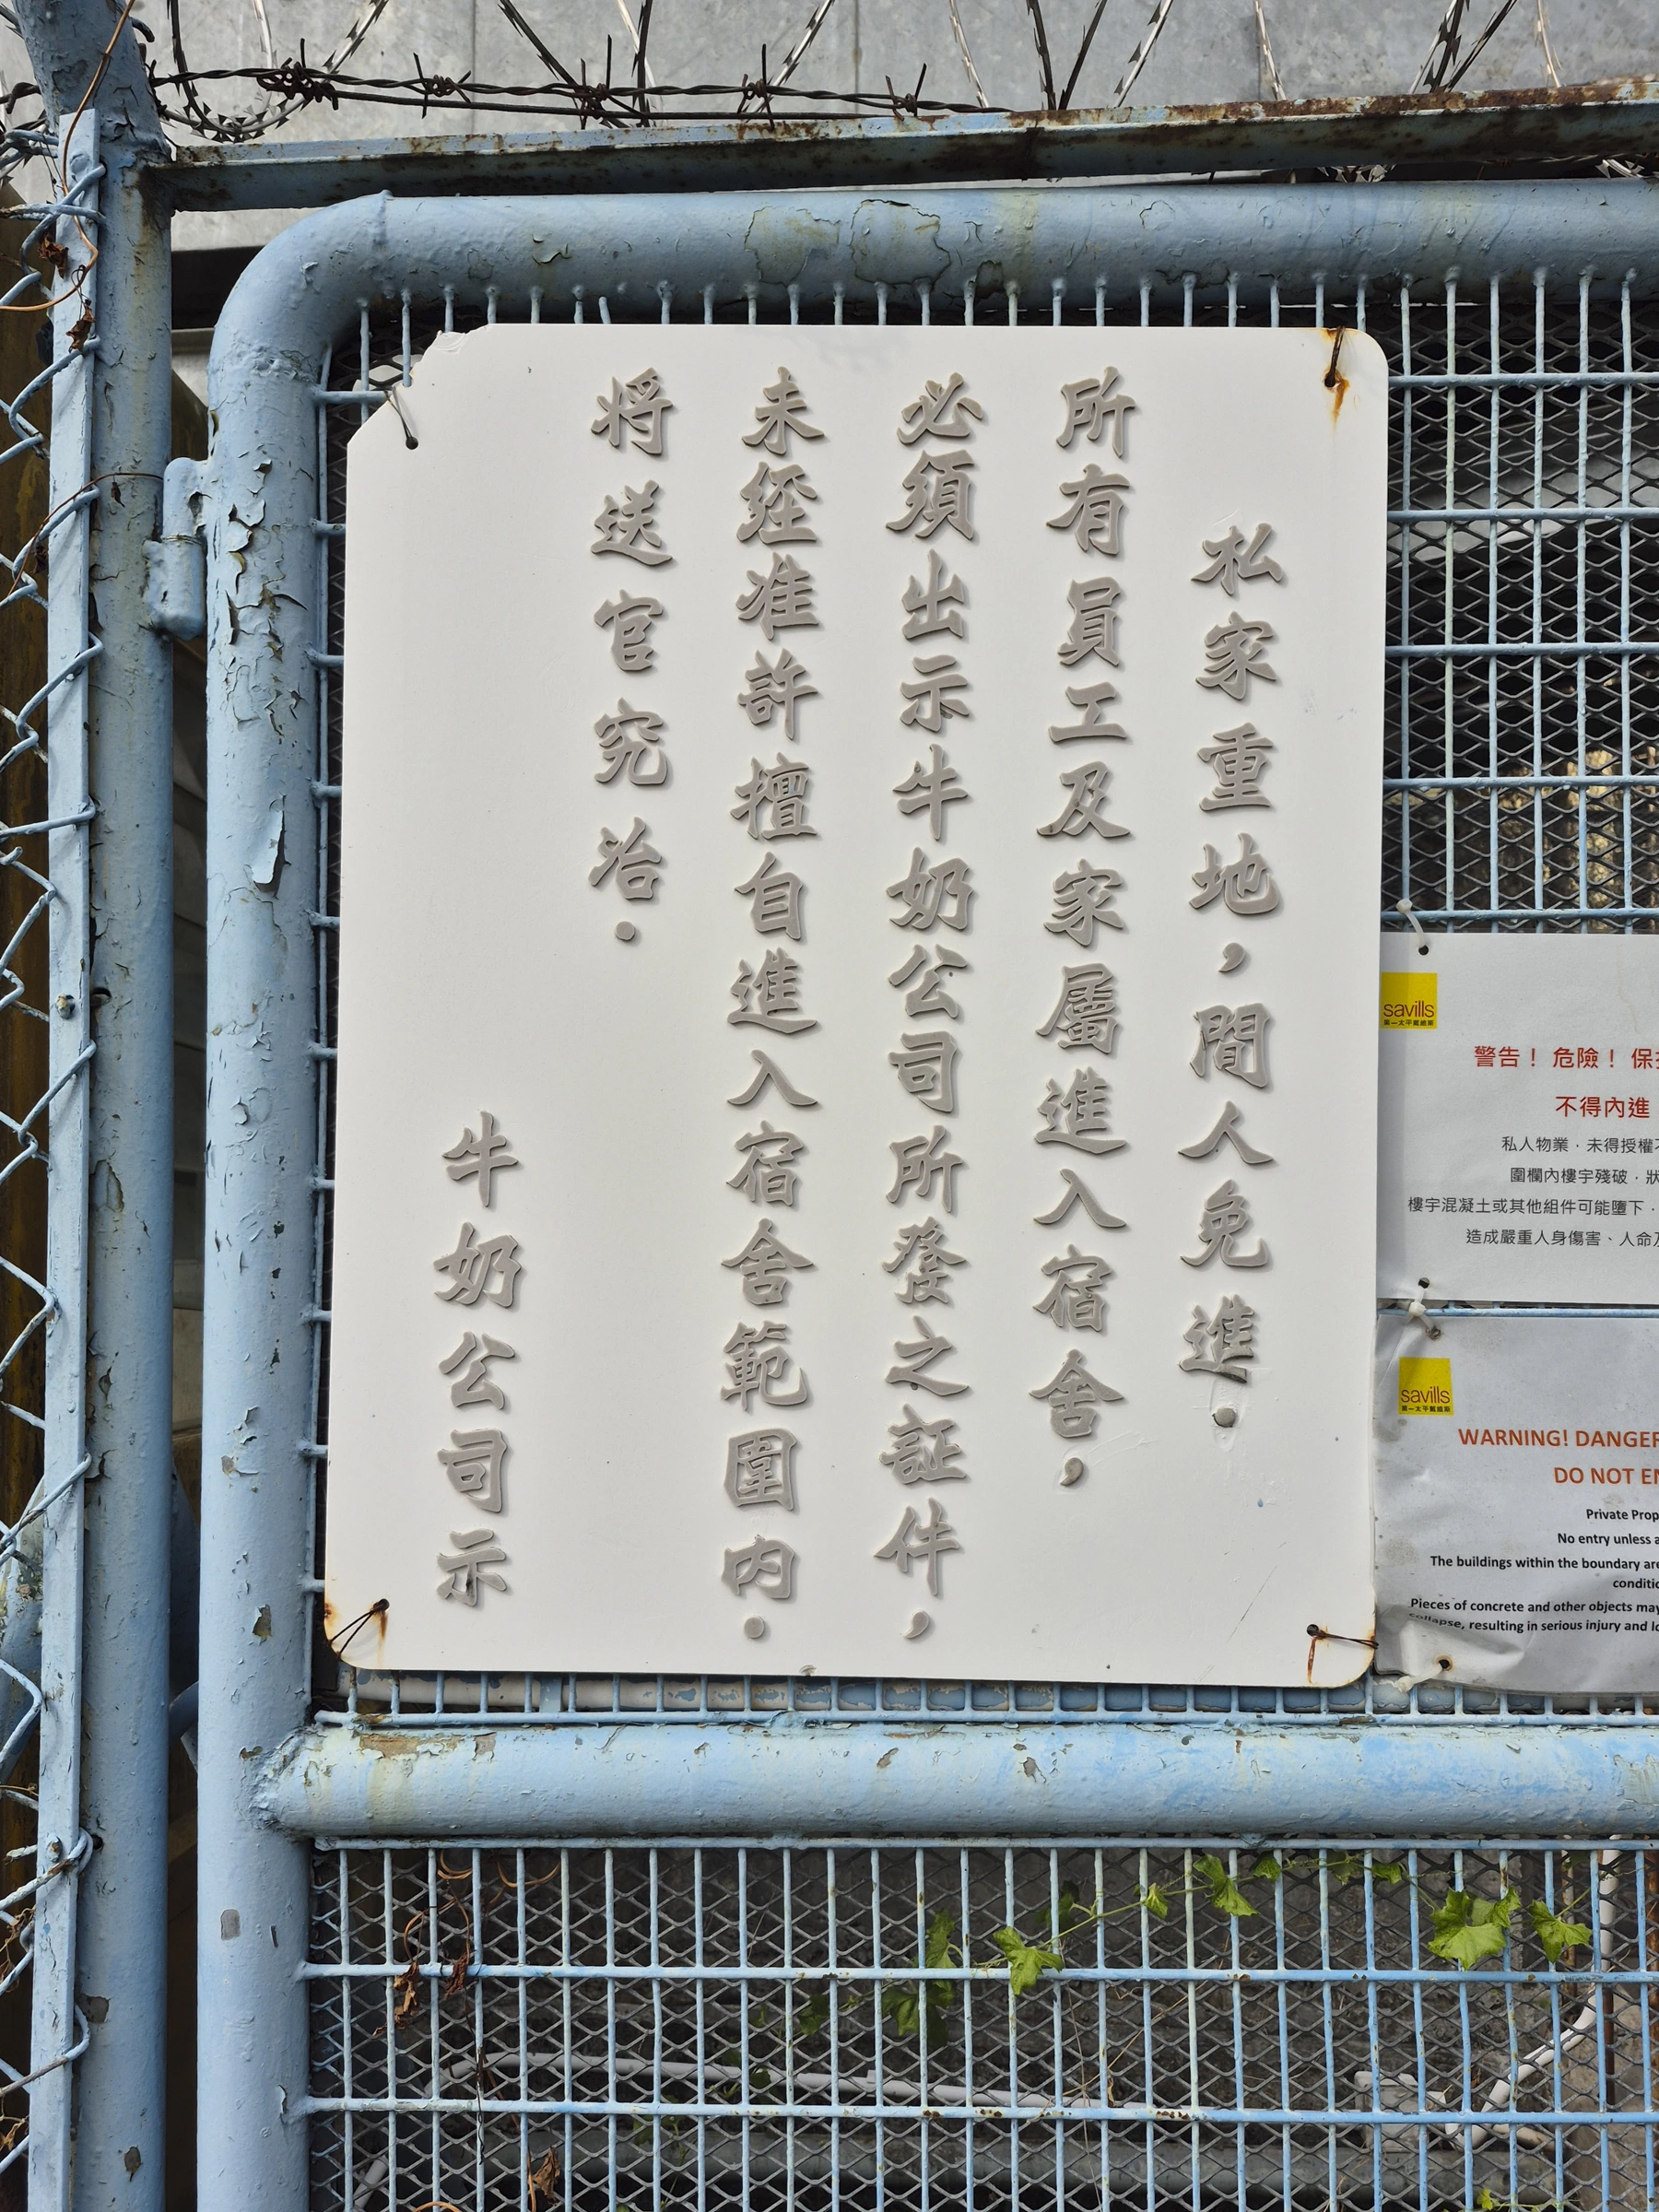 私家重地，間人免進．
所有員工及家屬進入宿舍，
必須出示牛奶公司所發之証件，
未經准許擅自進入宿舍範圍內．
将送官究治．
牛奶公司示
savills
第一太平戴維斯
警告！ 危險！ 保
不得內進
私人物業．未得授權
圍欄內樓宇殘破．狀
樓宇混凝土或其他組件可能墮下．
造成嚴重人身傷害、人命
savills
第一太平戴維斯
WARNING! DANGER
DO NOT EN
Private Prop
No entry unless a
The buildings within the boundary are
conditio
Pieces of concrete and other objects may
collapse, resulting in serious injury and lo